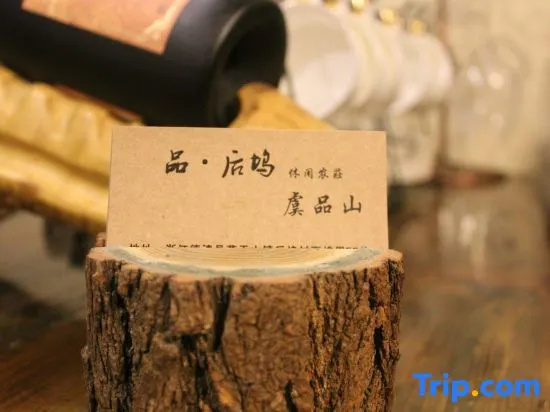 品·后坞 休闲农庄
虞品山
Trip.com